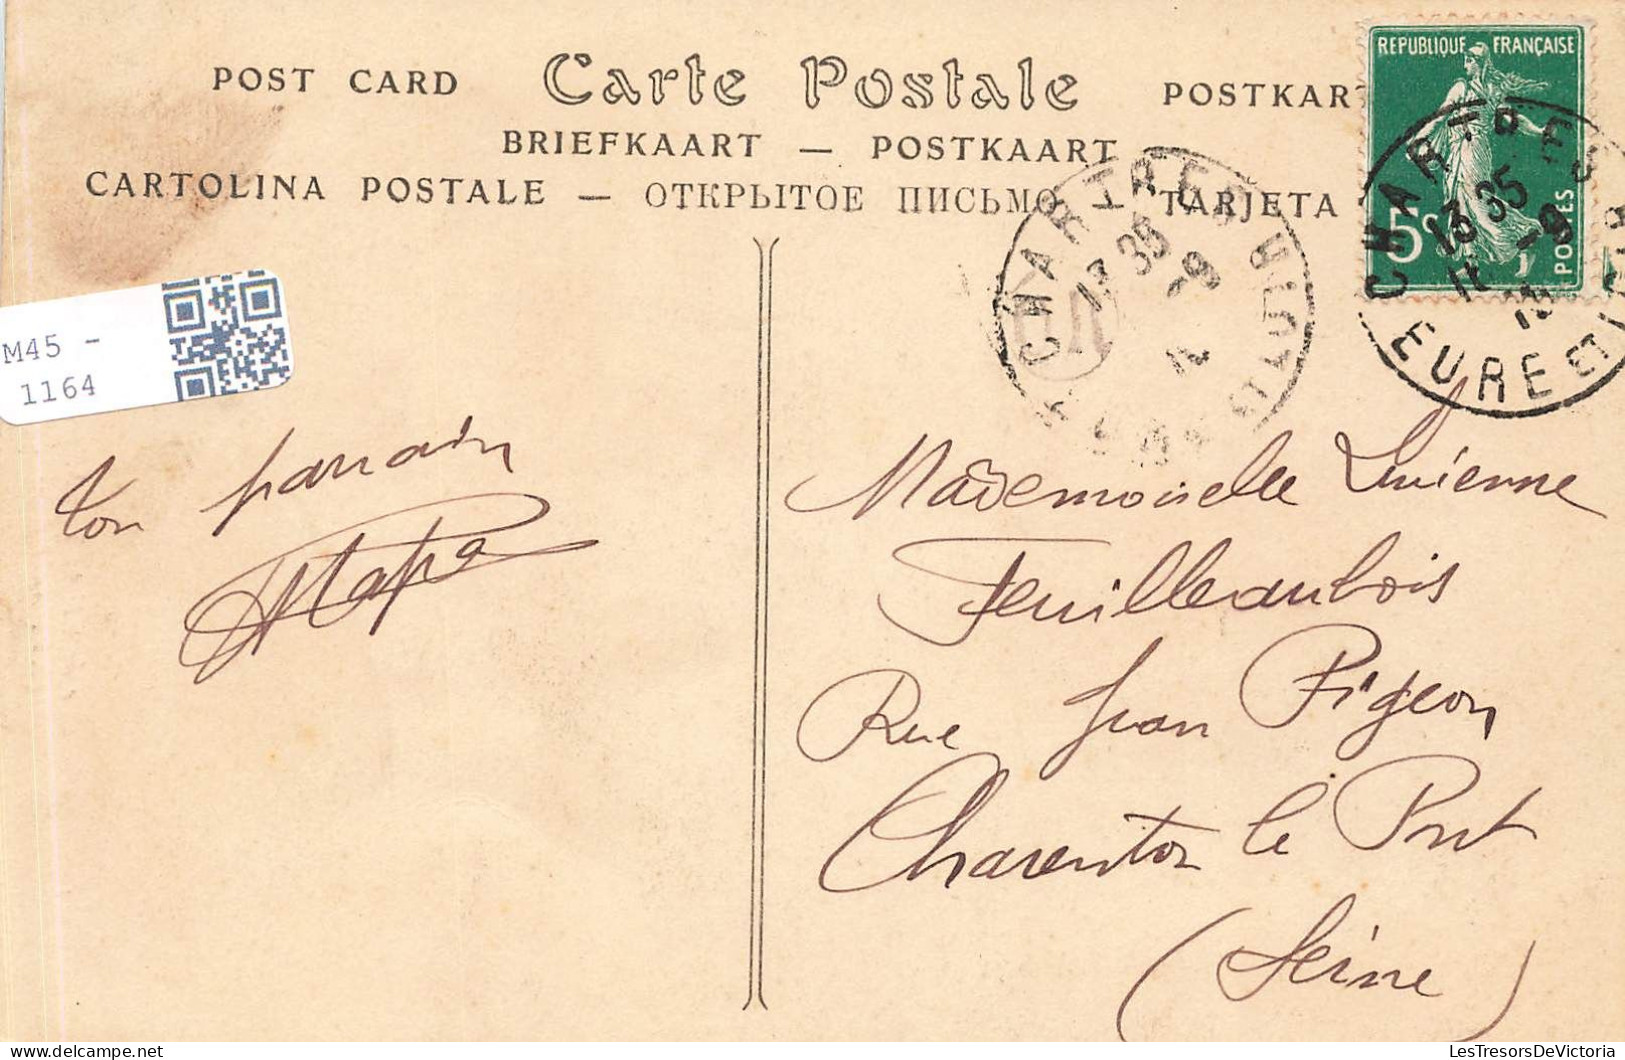 POST CARD Carte Postale POSTKAR
BRIEFKAART — POSTKAART
CARTOLINA POSTALE — ОТКРЫТОЕ ПИСЬМО — TARJETA
REPUBLIQUE FRANÇAISE
5c
POSTES
CHARTRES
13 35
EURE ET
CHARTRES
13 35
-9
M45 -
1164
ton parrain
Mademoiselle Lucienne
Feuilleaubois
Rue Jean Pigeon
Charenton le Pont
(Seine)
LesTresorsDeVictoria